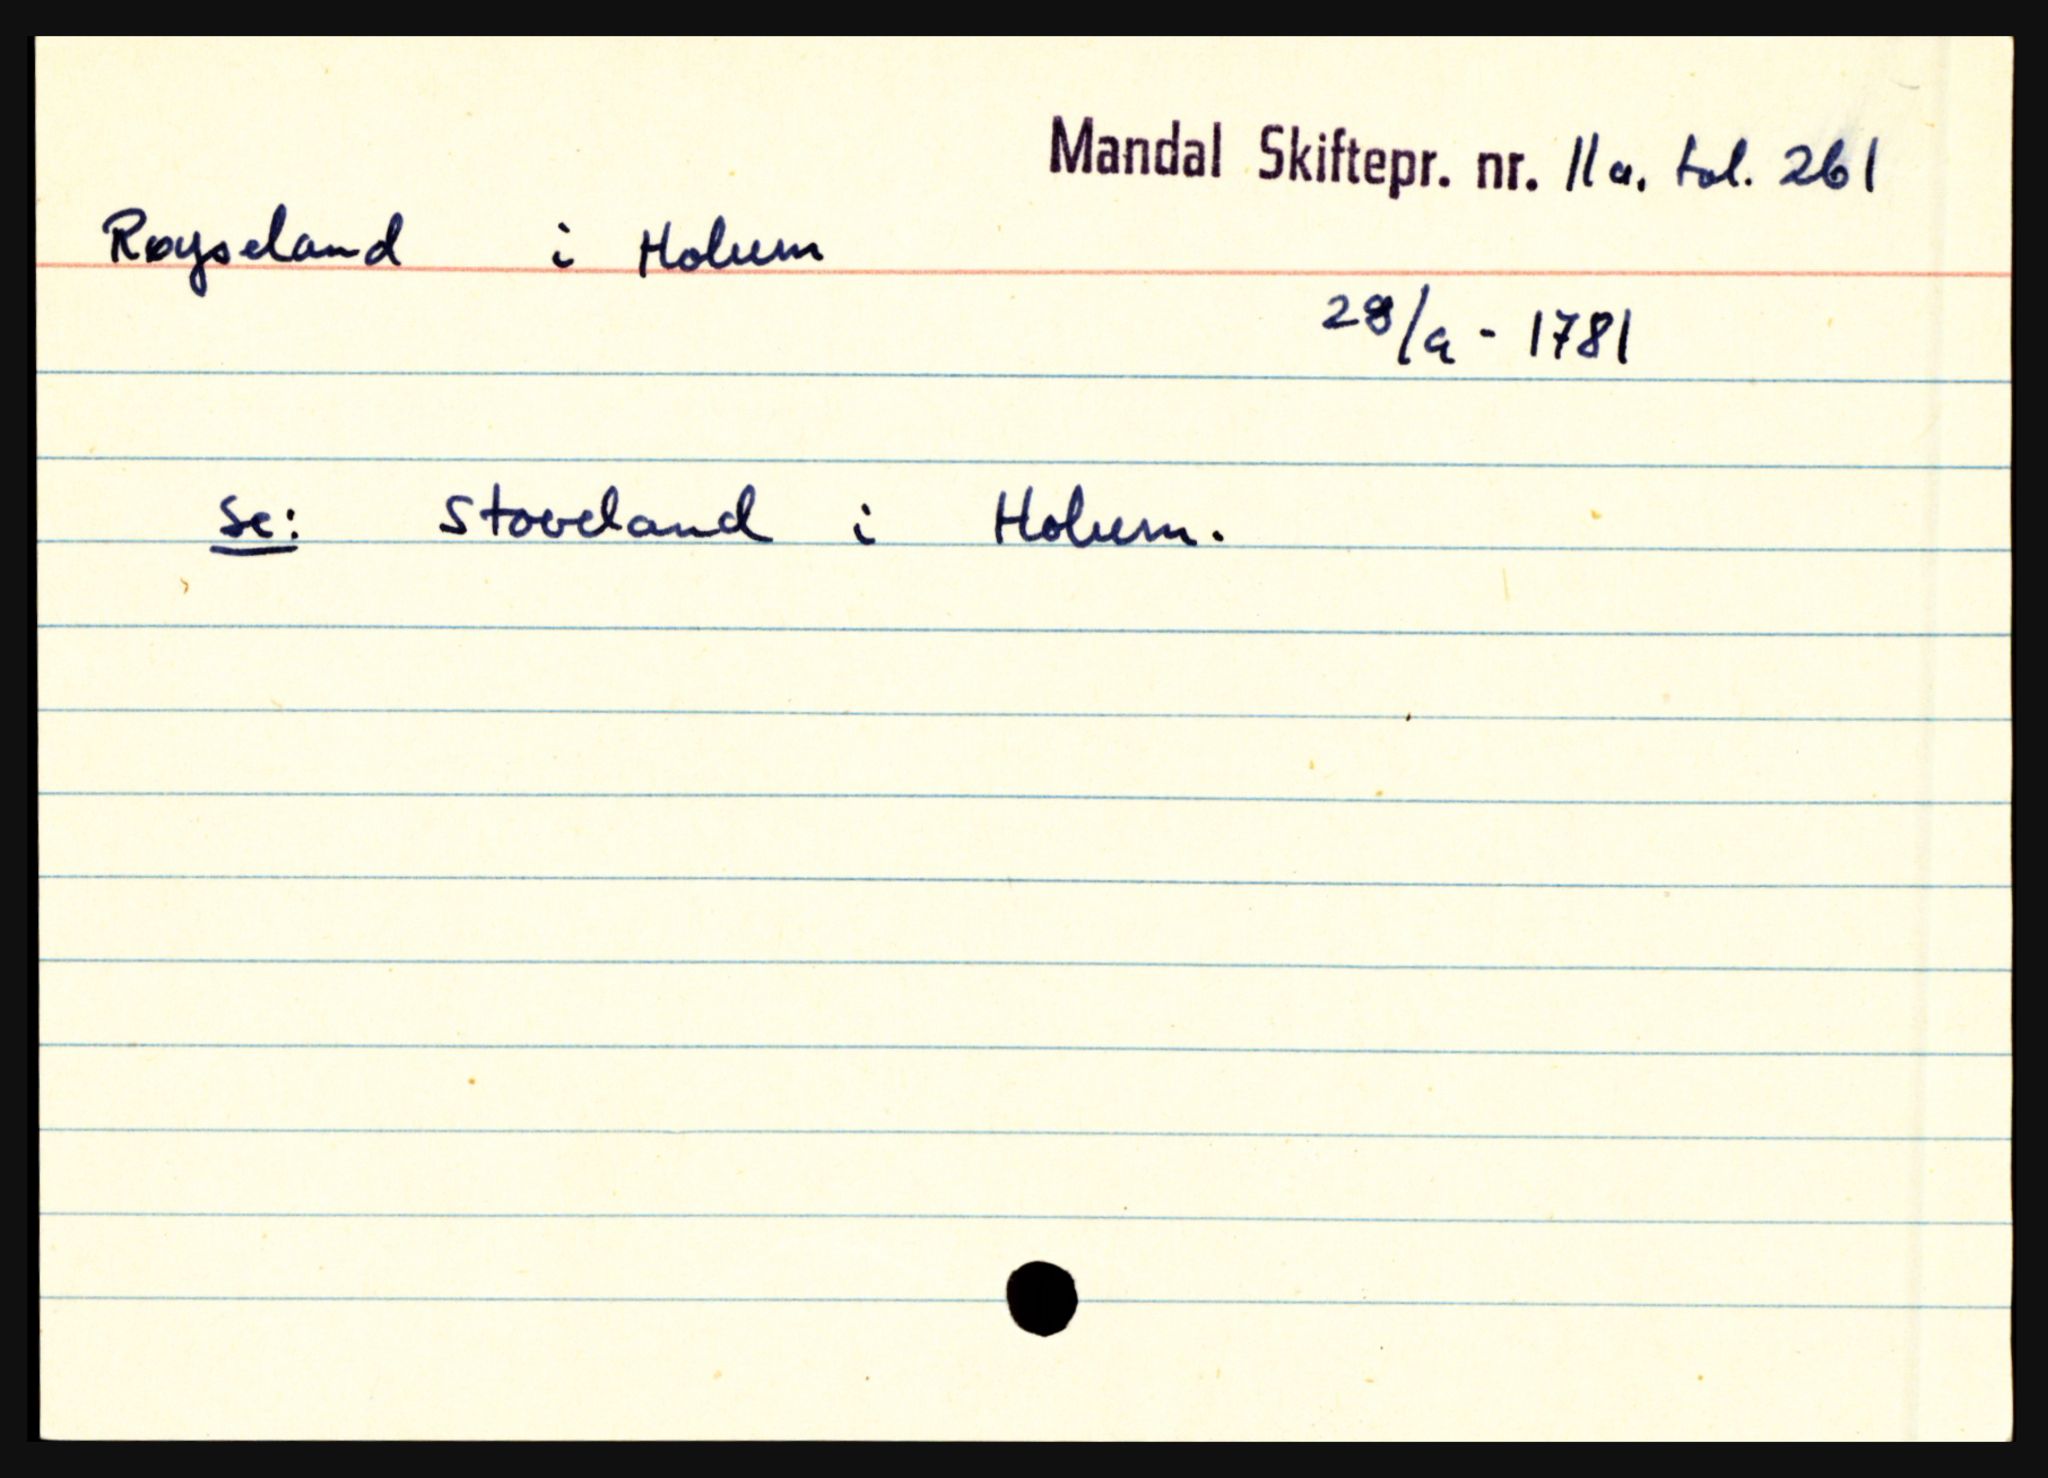 Mandal Skiftepr. nr. 11a. fol. 261
Røyseland i Holum
28/9 - 1781
Se: Stoveland i Holum.